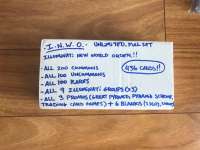 I.N.W.O. - UNLIMITED, FULL SET
ILLUMINATI: NEW WORLD ORDER!!
- ALL 200 COMMONS
- ALL 100 UNCOMMONS
- ALL 100 RARES
436 CARDS!!
- ALL 9 ILLUMINATI GROUPS (X3)
- ALL 3 PROMOS (GREAT PYRAMID, PYRAMID SCHEME,
TRADING CARD GAMES) + 6 BLANKS